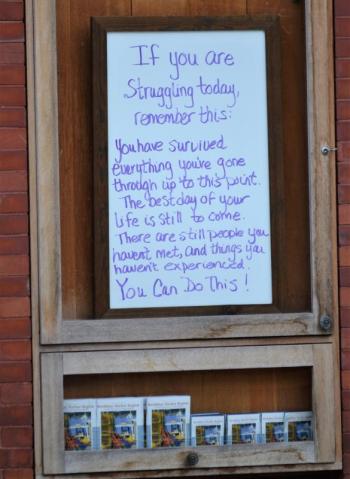 If you are
Struggling today,
remember this:
You have survived
everything you've gone
through up to this point.
The best day of your
life is still to come.
There are still people you
haven't met, and things you
haven't experienced.
You Can Do This!